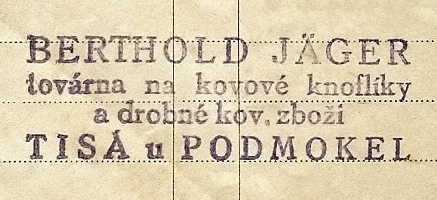 BERTHOLD JÄGER
továrna na kovové knoflíky
a drobné kov. zboží
TISÁ u PODMOKEL